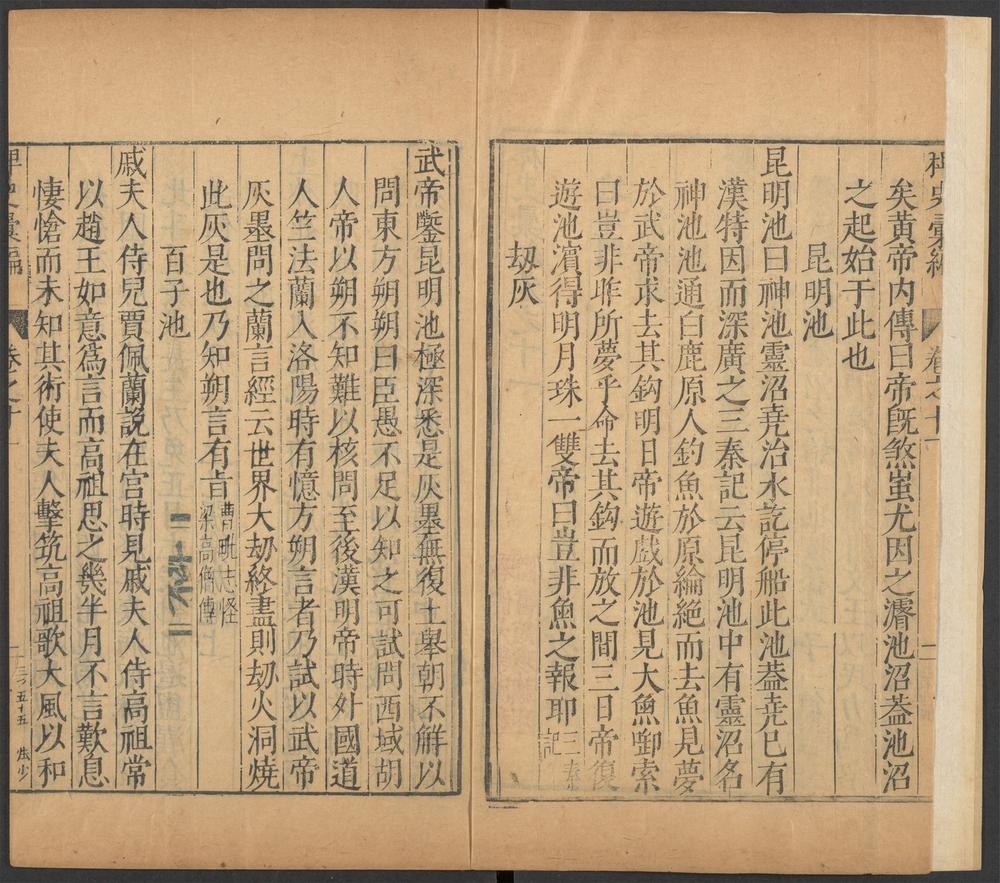 稗史彙編 卷之十一
矣黃帝内傳曰帝旣煞蚩尤因之濬池沼葢池沼
之起始于此也
昆明池
昆明池曰神池靈沼堯治水訖停船此池葢堯已有
漢特因而深廣之三秦記云昆明池中有靈沼名
神池池通白鹿原人釣魚於原綸絶而去魚見夢
於武帝求去其鈎明日帝遊戲於池見大魚啣索
曰豈非昨所夢乎命去其鈎而放之間三日帝復
遊池濵得明月珠一雙帝曰豈非魚之報耶三秦記
刼灰
武帝鑿昆明池極深悉是灰墨無復土舉朝不解以
問東方朔朔曰臣愚不足以知之可試問西域胡
人帝以朔不知難以核問至後漢明帝時外國道
人竺法蘭入洛陽時有憶方朔言者乃試以武帝
灰墨問之蘭言經云世界大劫終盡則劫火洞燒
此灰是也乃知朔言有旨曹毗志怪
梁高僧傳
百子池
戚夫人侍兒賈佩蘭說在宮時見戚夫人侍高祖常
以趙王如意爲言而高祖思之幾半月不言歎息
悽愴而未知其術使夫人擊筑高祖歌大風以和
稗史彙編 卷之十